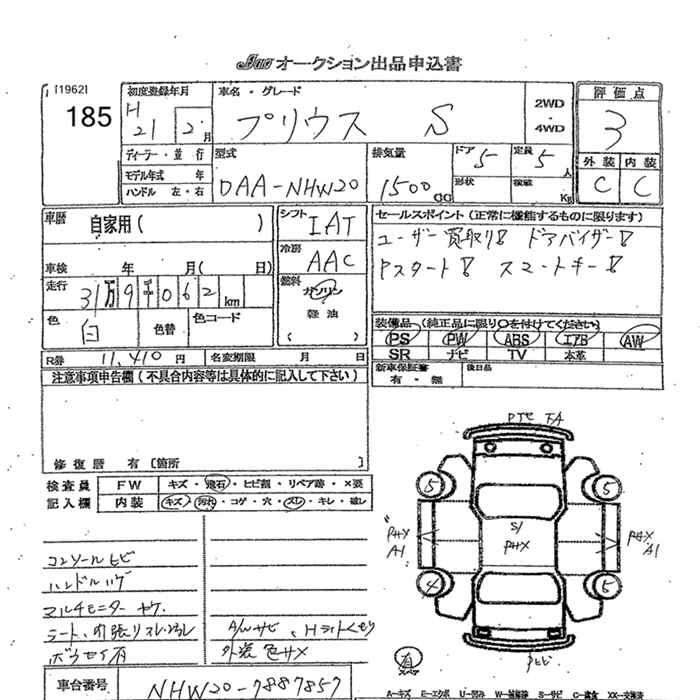 JAA オークション出品申込書
[1962]
185
初度登録年月
H 21 2月
車名・グレード
プリウス S
2WD
・
4WD
評価点
3
ディーラー・並行
モデル年式 年
ハンドル 左・右
型式
DAA-NHW20
排気量
1500 CC
ドア 5
定員 5 人
形状
積載 Kg
外装 内装
C C
車歴
自家用( )
車検 年 月( 日)
走行
31万9千062km
色
白
色替
色コード
シフト
IAT
冷房
AAC
燃料
ガソリン
軽油
( )
セールスポイント(正常に機能するものに限ります)
ユーザー買取り! ドアバイザー!
Pスタート! スマートキー!
装備品(純正品に限り○を付けてください)
PS PW ABS エアB AW
SR ナビ TV 本革
R券 11,410円
名変期限 月 日
新車保証書
有・無
後日品
注意事項申告欄(不具合内容等は具体的に記入して下さい)
修復歴 有〔箇所 〕
検査員
記入欄
FW キズ・飛石・ヒビ割・リペア跡・×要
内装 キズ・汚れ・コゲ・穴・スレ・キレ・破レ
コンソールヒビ
ハンドルハゲ
マルチモニターヤケ
シート、内張りスレ・汚レ
A/Wサビ、Hライトくもり
外装色サメ
5 5
PキX
A1
S/
PキX
PキX
A1
4 5
有
スペア
車台番号
NHW20-7887857
A-キズ E-エクボ U-凹み W-補修跡 S-サビ C-腐食 XX-交換済